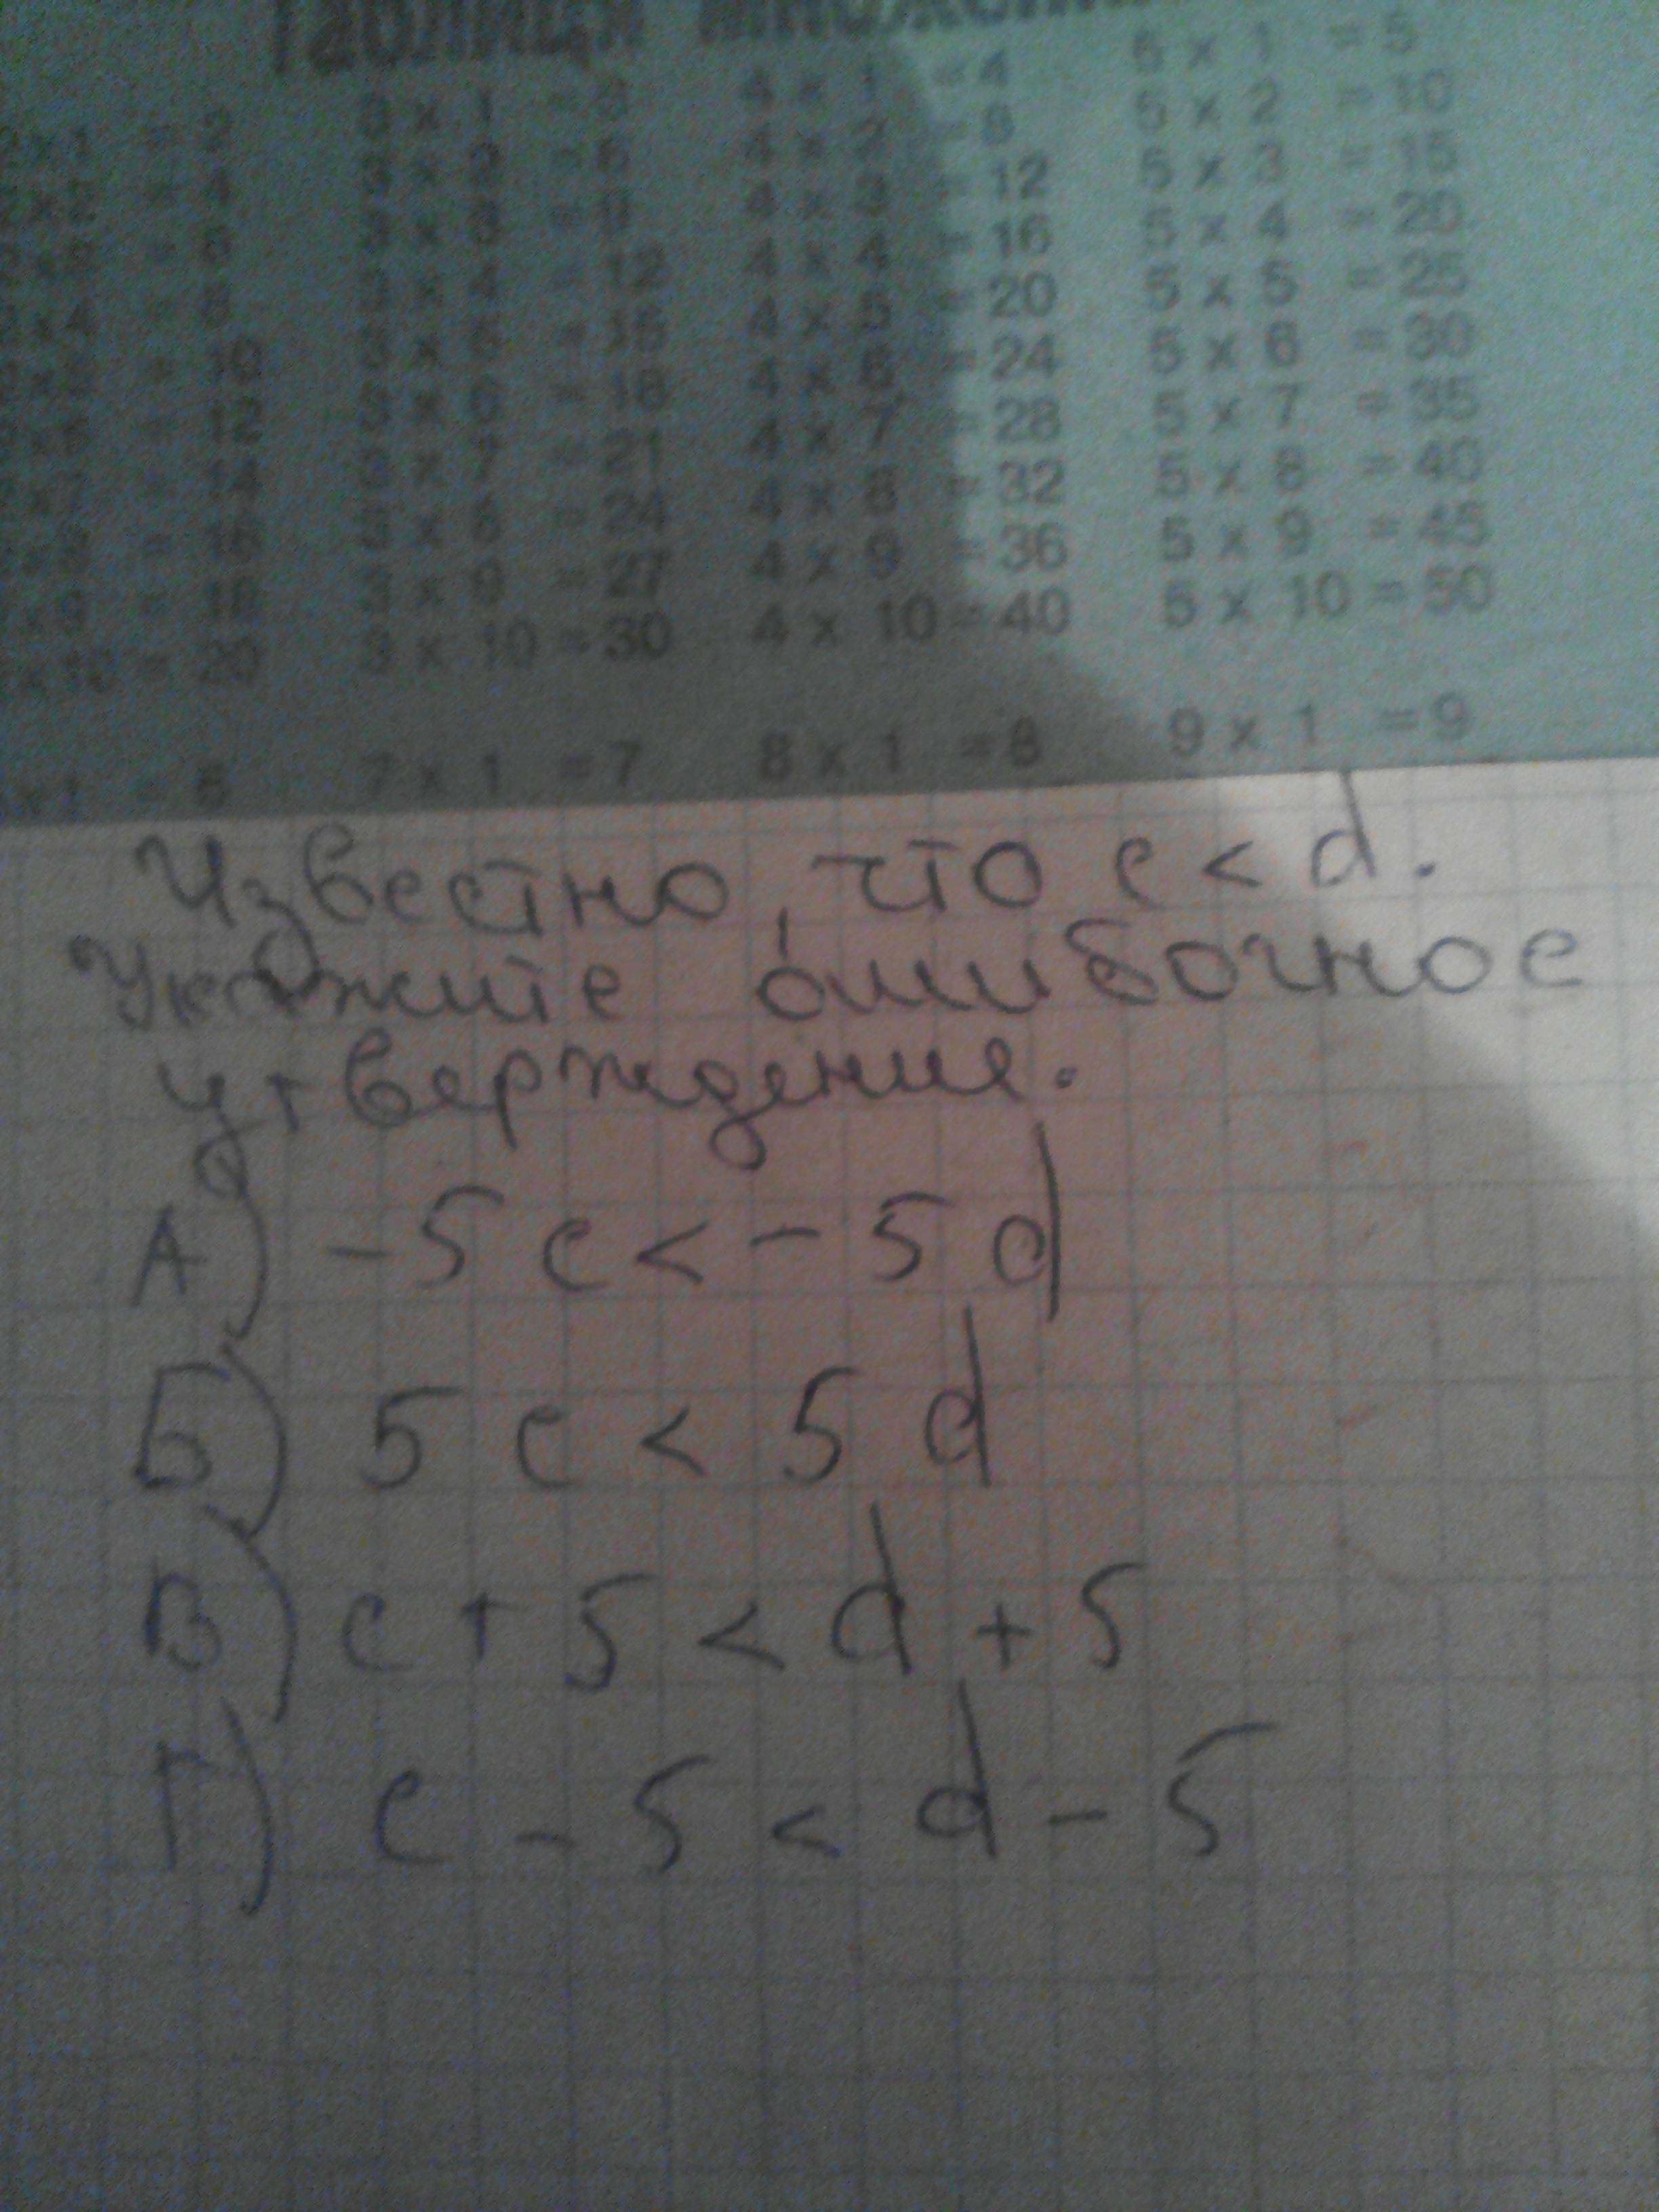 Таблица
3 x 1 = 3 4 x 1 = 4 5 x 1 = 5
x 1 = 2 3 x 2 = 6 4 x 2 = 8 5 x 2 = 10
x 2 = 4 3 x 3 = 9 4 x 3 = 12 5 x 3 = 15
x 3 = 6 3 x 4 = 12 4 x 4 = 16 5 x 4 = 20
x 4 = 8 3 x 5 = 15 4 x 5 = 20 5 x 5 = 25
x 5 = 10 3 x 6 = 18 4 x 6 = 24 5 x 6 = 30
x 6 = 12 3 x 7 = 21 4 x 7 = 28 5 x 7 = 35
x 7 = 14 3 x 8 = 24 4 x 8 = 32 5 x 8 = 40
x 8 = 16 3 x 9 = 27 4 x 9 = 36 5 x 9 = 45
x 9 = 18 3 x 10 = 30 4 x 10 = 40 5 x 10 = 50
x 10 = 20
x 1 = 6 7 x 1 = 7 8 x 1 = 8 9 x 1 = 9
Известно, что c < d.
Укажите ошибочное
утверждение.
А) -5c < -5d
Б) 5c < 5d
В) c + 5 < d + 5
Г) c - 5 < d - 5